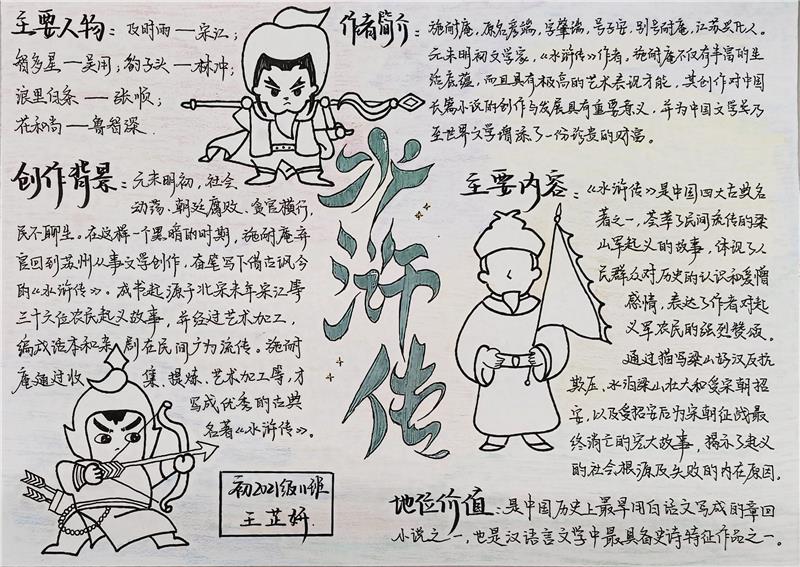 主要人物：及时雨——宋江；
智多星——吴用；豹子头——林冲；
浪里白条——张顺；
花和尚——鲁智深
作者简介：施耐庵，原名彦端，字肇瑞，号子安，别号耐庵，江苏兴化人。
元末明初文学家，《水浒传》作者，施耐庵不仅有丰富的生
活底蕴，而且具有极高的艺术表现才能，其创作对中国
长篇小说的创作与发展具有重要意义，并为中国文学甚乃
至世界文学增添了一份珍贵的财富。
创作背景：元末明初，社会
动荡、朝廷腐败、贪官横行，
民不聊生。在这样一个黑暗的时期，施耐庵弃
官回到苏州从事文学创作，奋笔写下借古讽今
的《水浒传》。成书起源于北宋末年宋江等
三十六位农民起义故事，并经过艺术加工，
编成话本和杂剧在民间广为流传。施耐
庵通过收集、提炼、艺术加工等，才
写成优秀的古典
名著《水浒传》。
水浒传
主要内容：《水浒传》是中国四大古典名
著之一，荟萃了民间流传的梁
山军起义的故事，体现了人
民群众对历史的认识和爱憎
感情，表达了作者对起
义军农民的强烈赞颂。
通过描写梁山好汉反抗
欺压、水泊梁山壮大和受宋朝招
安，以及受招安后为宋朝征战最
终消亡的宏大故事，揭示了起义
的社会根源及失败的内在原因。
初2021级11班
王芷妍
地位价值：是中国历史上最早用白话文写成的章回
小说之一，也是汉语言文学中最具备史诗特征作品之一。